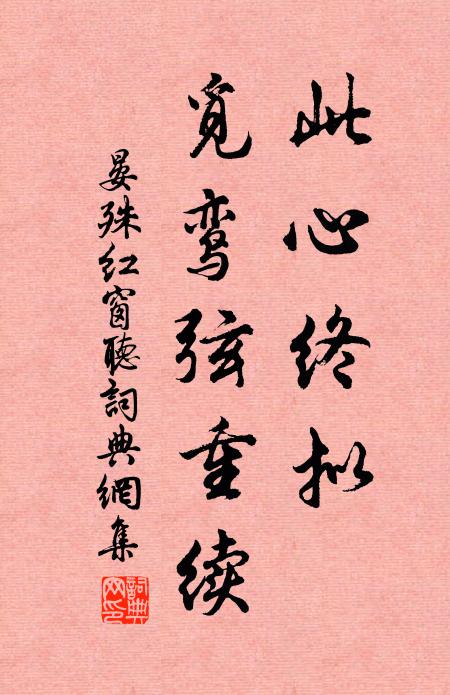 此心终拟
觅鸾弦重续
晏殊红窗聽詞典網集
詞典网印